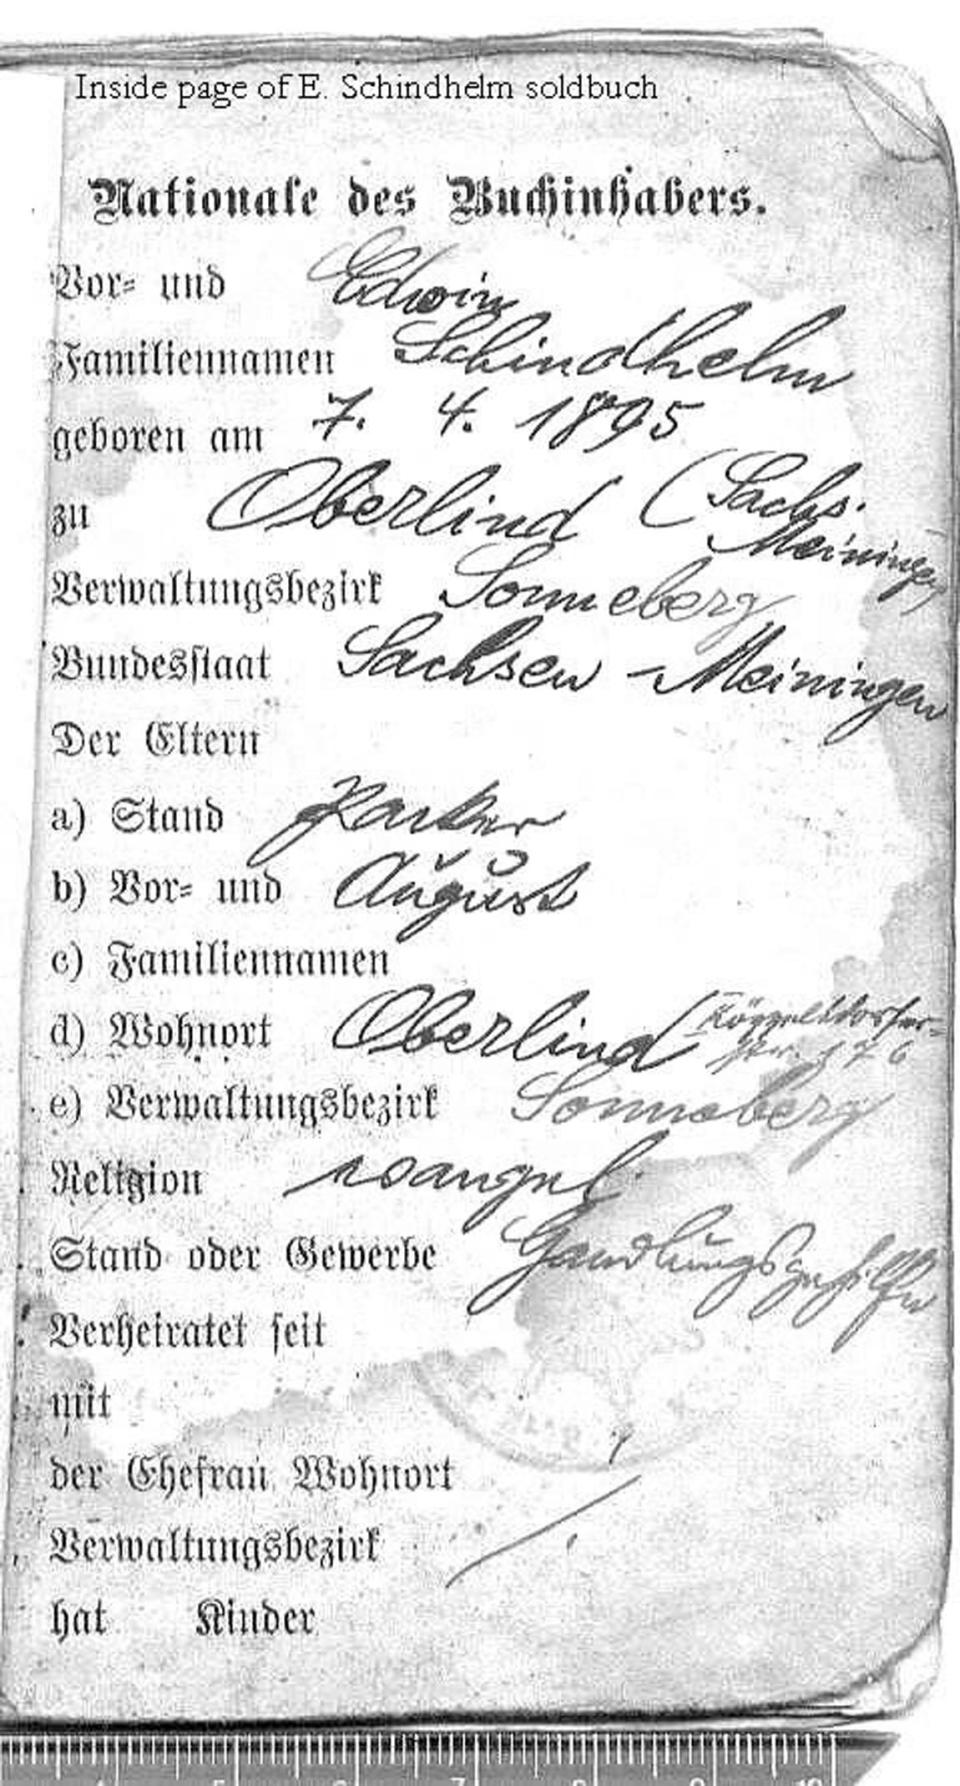 Inside page of E. Schindhelm soldbuch
Nationale des Buchinhabers.
Vor- und Edwin
Familiennamen Schindhelm
geboren am 7. 4. 1895
zu Oberlind (Sachs.
Meiningen)
Verwaltungsbezirk Sonneberg
Bundesstaat Sachsen-Meiningen
Der Eltern
a) Stand
b) Vor- und August
c) Familiennamen
d) Wohnort Oberlind
e) Verwaltungsbezirk Sonneberg
Religion evangel.
Stand oder Gewerbe Handlungsgehilfe
Verheiratet seit
mit
der Ehefrau Wohnort
Verwaltungsbezirk
hat Kinder
4 5 6 7 8 9 10